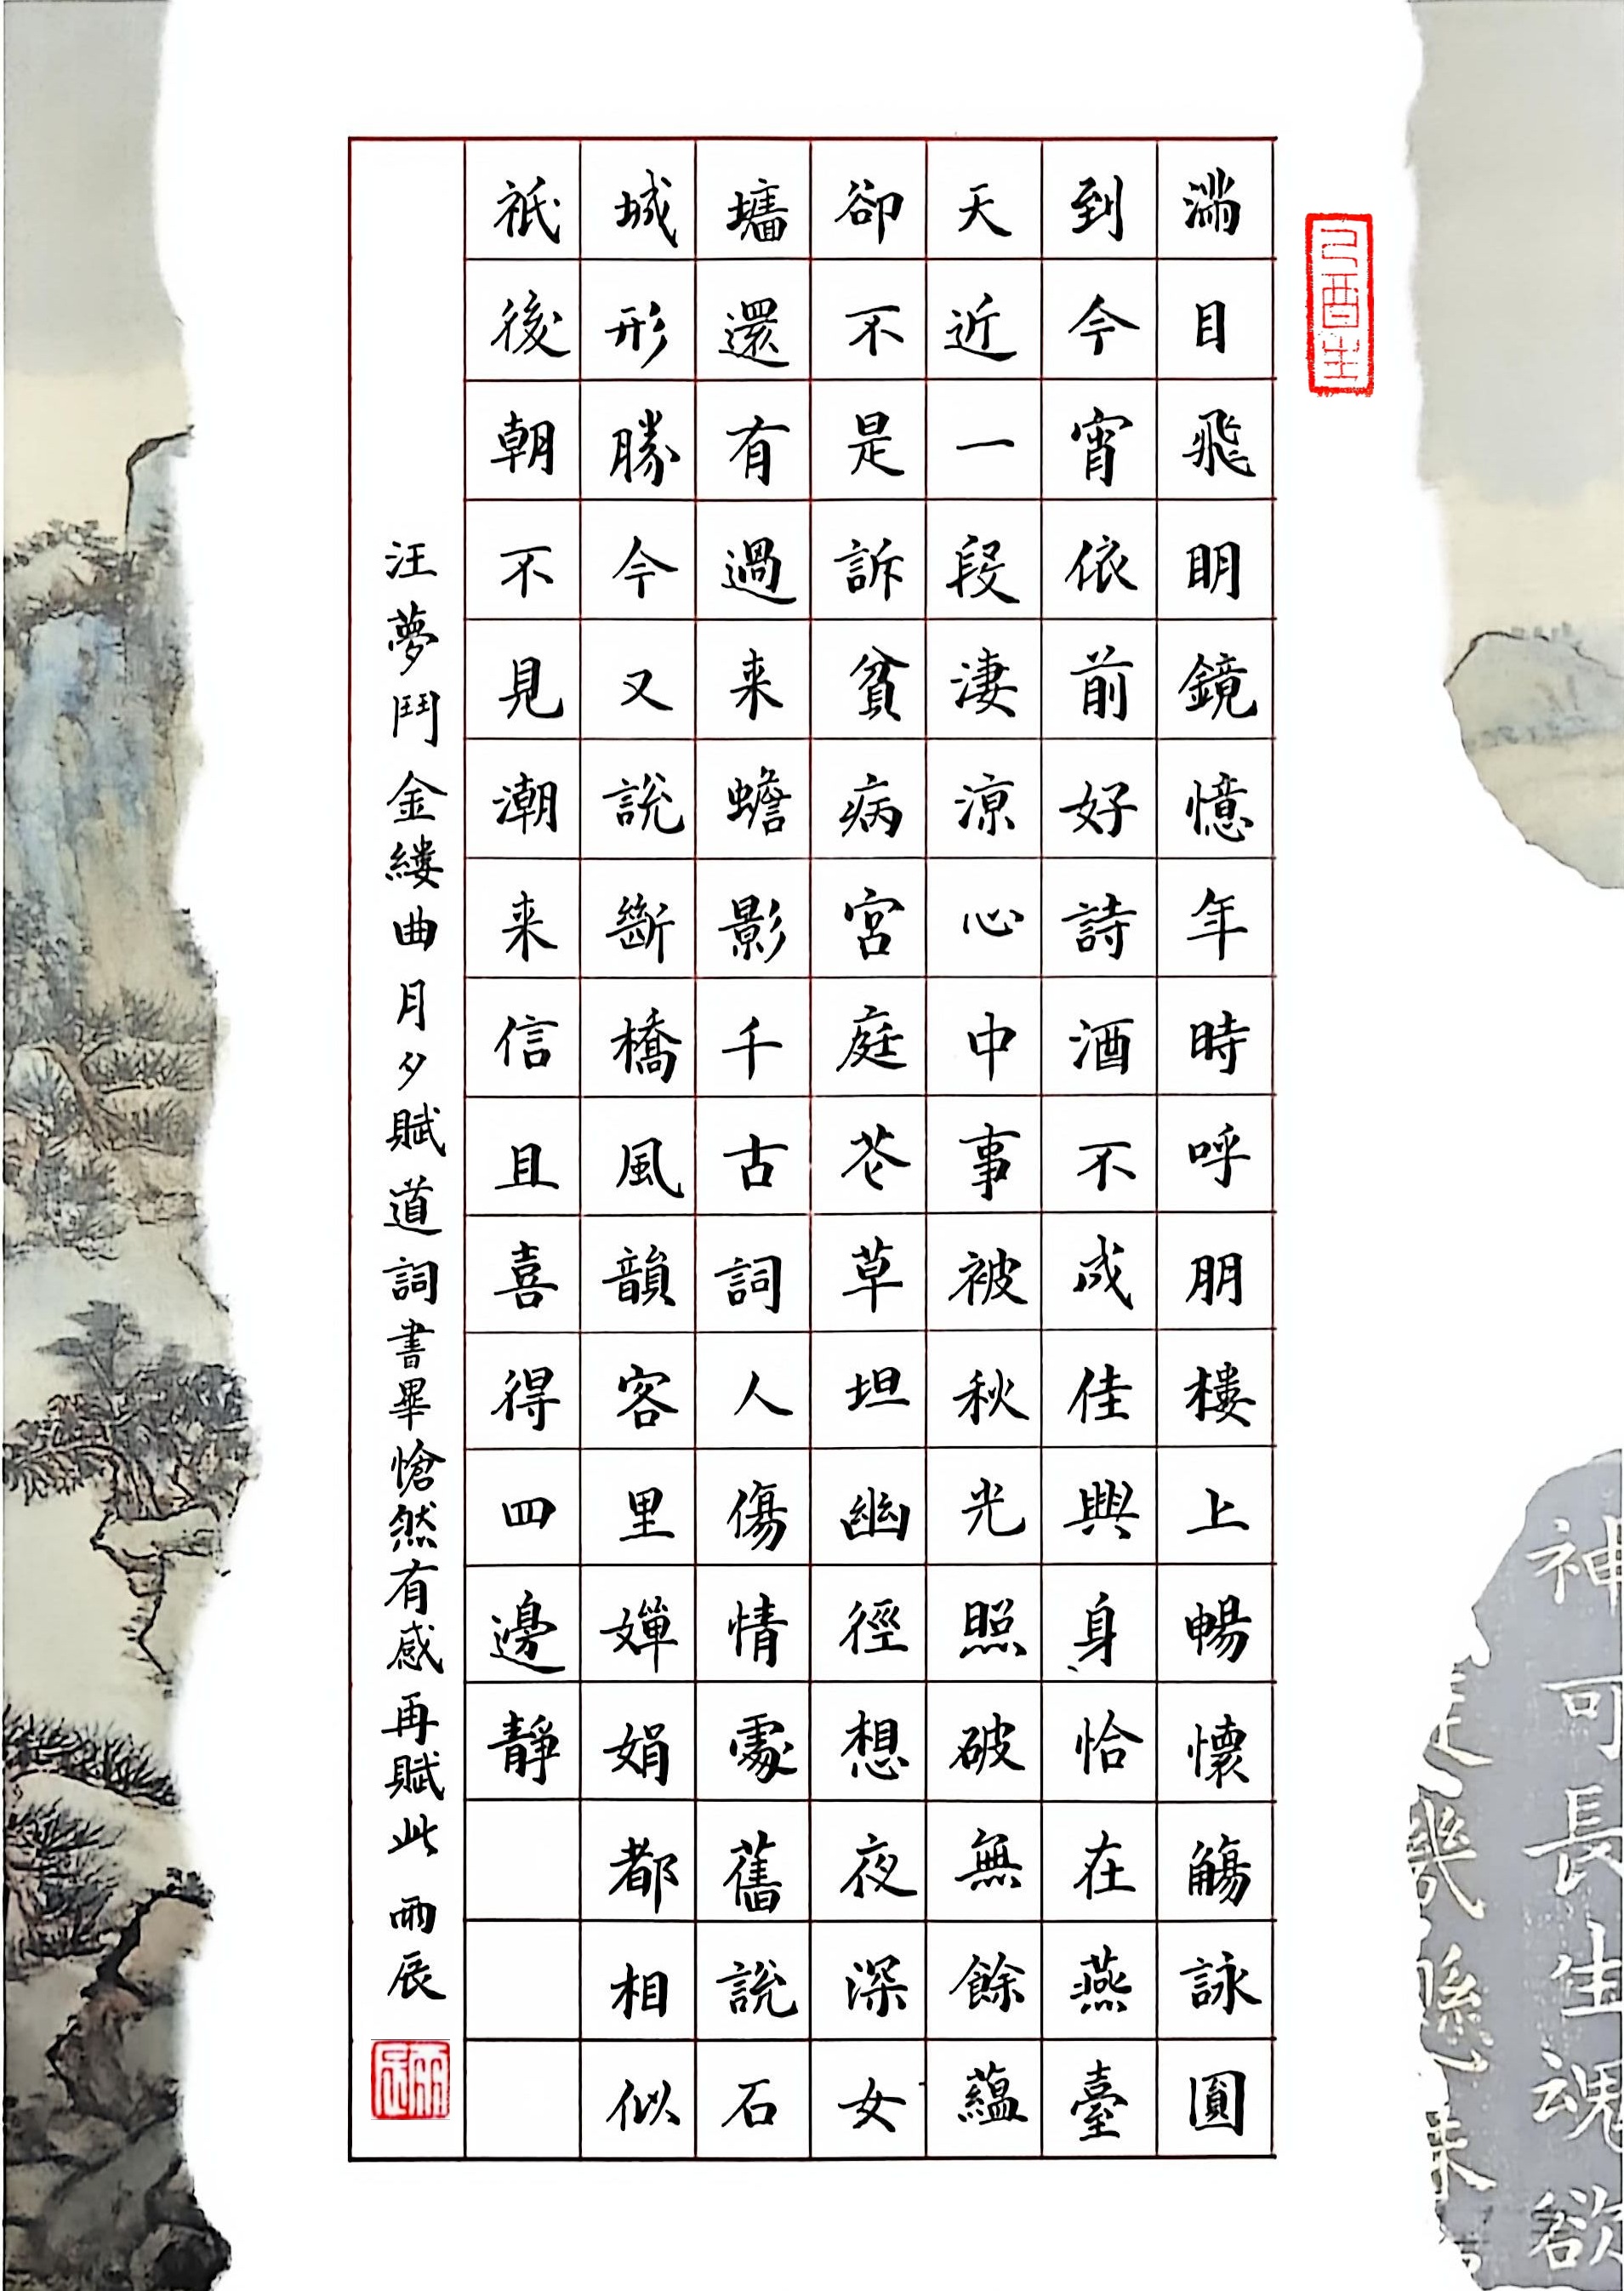 己酉生
滿目飛明鏡憶年時呼朋樓上暢懷觴詠圓
到今宵依前好詩酒不成佳興身恰在燕臺
天近一段淒涼心中事被秋光照破無餘蘊
卻不是訴貧病宮庭花草坦幽徑想夜深女
墻還有過来蟾影千古詞人傷情處舊說石
城形勝今又說斷橋風韻客里嬋娟都相似
祇後朝不見潮来信且喜得四邊靜
汪夢鬥金縷曲月夕賦道詞書畢愴然有感再賦此 雨辰
雨辰
神可長生魂欲